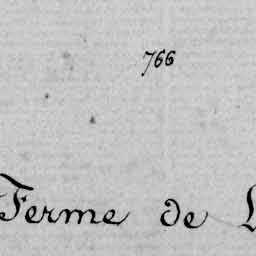 766
Ferme de